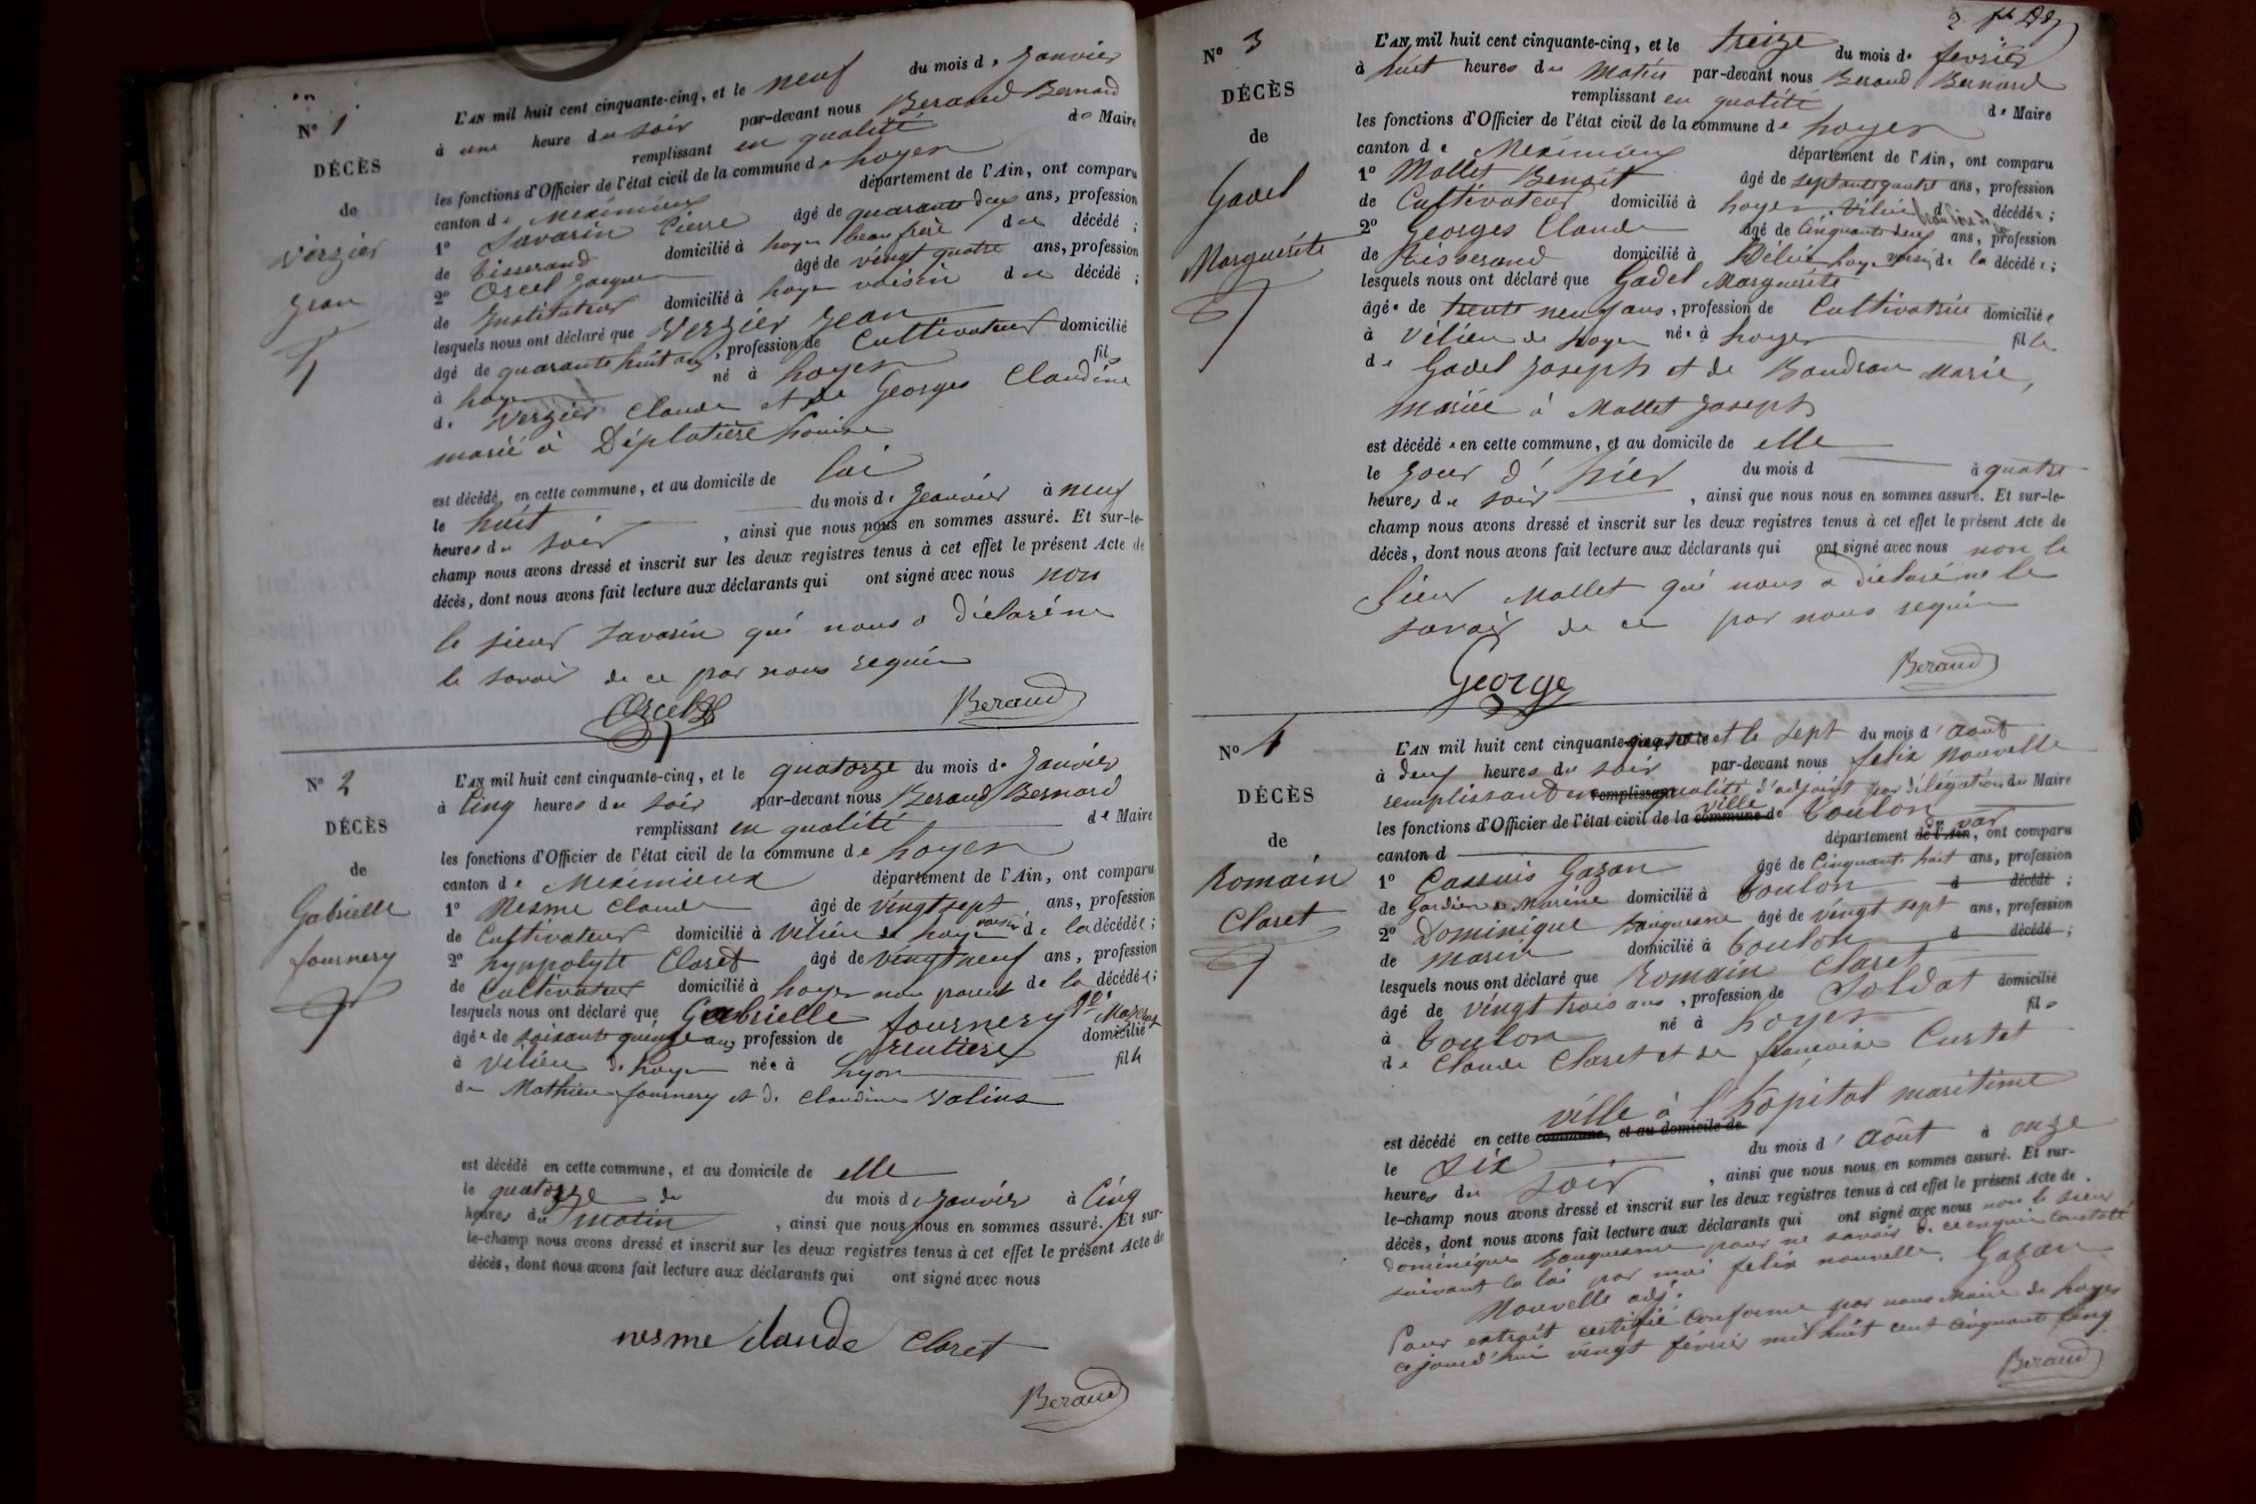 N° 1
DÉCÈS
de
Verzier
Jean
L'AN mil huit cent cinquante-cinq, et le neuf du mois de Janvier
à une heure du soir par-devant nous Beraud Bernard
remplissant en qualité de Maire
les fonctions d'Officier de l'état civil de la commune de Loyes
canton de Meximieux département de l'Ain, ont comparu
1° Savarin Pierre âgé de quarante deux ans, profession
de Tisserand domicilié à Loyes beau frère du décédé ;
2° Orcel Jacques âgé de vingt quatre ans, profession
de Instituteur domicilié à Loyes voisin du décédé ;
lesquels nous ont déclaré que Verzier Jean
âgé de quarante huit ans, profession de Cultivateur domicilié
à Loyes né à Loyes fils
de Verzier Claude et de Georges Claudine
marié à Déplatière Louise
est décédé en cette commune, et au domicile de lui
le huit du mois de Janvier à neuf
heures du soir, ainsi que nous nous en sommes assuré. Et sur-le-
champ nous avons dressé et inscrit sur les deux registres tenus à cet effet le présent Acte de
décès, dont nous avons fait lecture aux déclarants qui ont signé avec nous non
le sieur Savarin qui nous a déclaré ne
le savoir de ce par nous requis
Orcel Beraud
N° 2
DÉCÈS
de
Gabrielle
fournery
L'AN mil huit cent cinquante-cinq, et le quatorze du mois de Janvier
à Cinq heures du soir par-devant nous Beraud Bernard
remplissant en qualité de Maire
les fonctions d'Officier de l'état civil de la commune de Loyes
canton de Meximieux département de l'Ain, ont comparu
1° Nesme Claude âgé de vingt sept ans, profession
de Cultivateur domicilié à Vélieu de Loyes voisin de la décédée ;
2° hyppolyte Claret âgé de vingt neuf ans, profession
de Cultivateur domicilié à Loyes non parent de la décédée ;
lesquels nous ont déclaré que Gabrielle fournery
âgée de soixante quinze ans profession de rentière domicilié
à Vélieu de Loyes née à Lyon fille
de Mathieu fournery et de Claudine
est décédé en cette commune, et au domicile de elle
le quatorze du du mois de Janvier à Cinq
heures du matin, ainsi que nous nous en sommes assuré. Et sur-
le-champ nous avons dressé et inscrit sur les deux registres tenus à cet effet le présent Acte de
décès, dont nous avons fait lecture aux déclarants qui ont signé avec nous
nesme claude Claret
Beraud
N° 3
DÉCÈS
de
Gadel
Marguerite
L'AN mil huit cent cinquante-cinq, et le treize du mois de février
à huit heures du matin par-devant nous Beraud Bernard
remplissant en qualité de Maire
les fonctions d'Officier de l'état civil de la commune de Loyes
canton de Meximieux département de l'Ain, ont comparu
1° Mallet Benoit âgé de septante quatre ans, profession
de Cultivateur domicilié à Loyes Vélieu décédée ;
2° Georges Claude âgé de Cinquante deux ans, profession
de Tisserand domicilié à Vélieu Loyes voisin de la décédée ;
lesquels nous ont déclaré que Gadel Marguerite
âgée de trente neuf ans, profession de Cultivatrice domiciliée
à Vélieu de Loyes née à Loyes fille
de Gadel Joseph et de Baudran Marie,
mariée à Mallet Joseph
est décédée en cette commune, et au domicile de elle
le Jour d'hier du mois d à quatre
heures du soir, ainsi que nous nous en sommes assuré. Et sur-le-
champ nous avons dressé et inscrit sur les deux registres tenus à cet effet le présent Acte de
décès, dont nous avons fait lecture aux déclarants qui ont signé avec nous non le
Sieur Mallet qui nous a déclaré ne le
savoir de ce par nous requis
George Beraud
N° 4
DÉCÈS
de
Romain
Claret
L'AN mil huit cent cinquante et le sept du mois d'août
à deux heures du soir par-devant nous felix Nouvelle
remplissant en qualité d'adjoint par délégation du Maire
les fonctions d'Officier de l'état civil de la commune ville de Toulon
canton d département de l'Ain du var, ont comparu
1° Cassuis Gazan âgé de Cinquante huit ans, profession
de Gardien de Marine domicilié à Toulon d décédé ;
2° Dominique âgé de vingt sept ans, profession
de marin domicilié à Toulon d décédé ;
lesquels nous ont déclaré que Romain Claret
âgé de vingt trois ans, profession de Soldat domicilié
à Toulon né à Loyes fils
de Claude Claret et de françoise Curtet
est décédé en cette commune, et au domicile de ville à l'hôpital maritime
le Six du mois d'Août à onze
heures du soir, ainsi que nous nous en sommes assuré. Et sur-
le-champ nous avons dressé et inscrit sur les deux registres tenus à cet effet le présent Acte de
décès, dont nous avons fait lecture aux déclarants qui ont signé avec nous non le sieur
dominique pour ne savoir de ce enquis Constaté
suivant la loi par moi felix nouvelle. Gazan
Nouvelle adj.
Pour extrait certifié Conforme par nous Maire de Loyes
ce jourd'hui vingt février mil huit cent cinquante cinq
Beraud